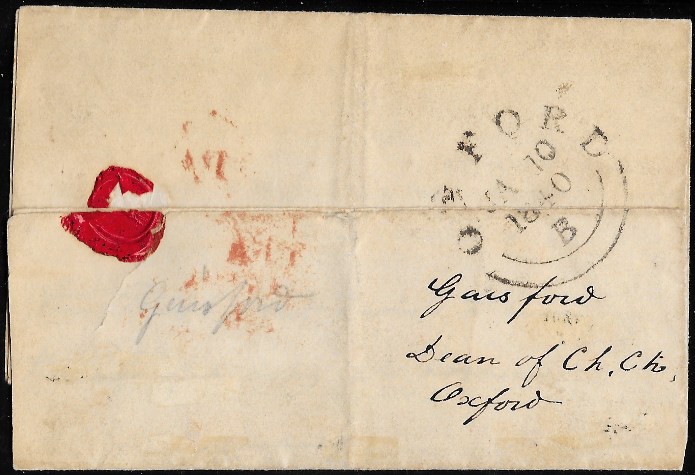 OXFORD
JA 10
1840
B
Gaisford
Gaisford
Dean of Ch. Ch.
Oxford